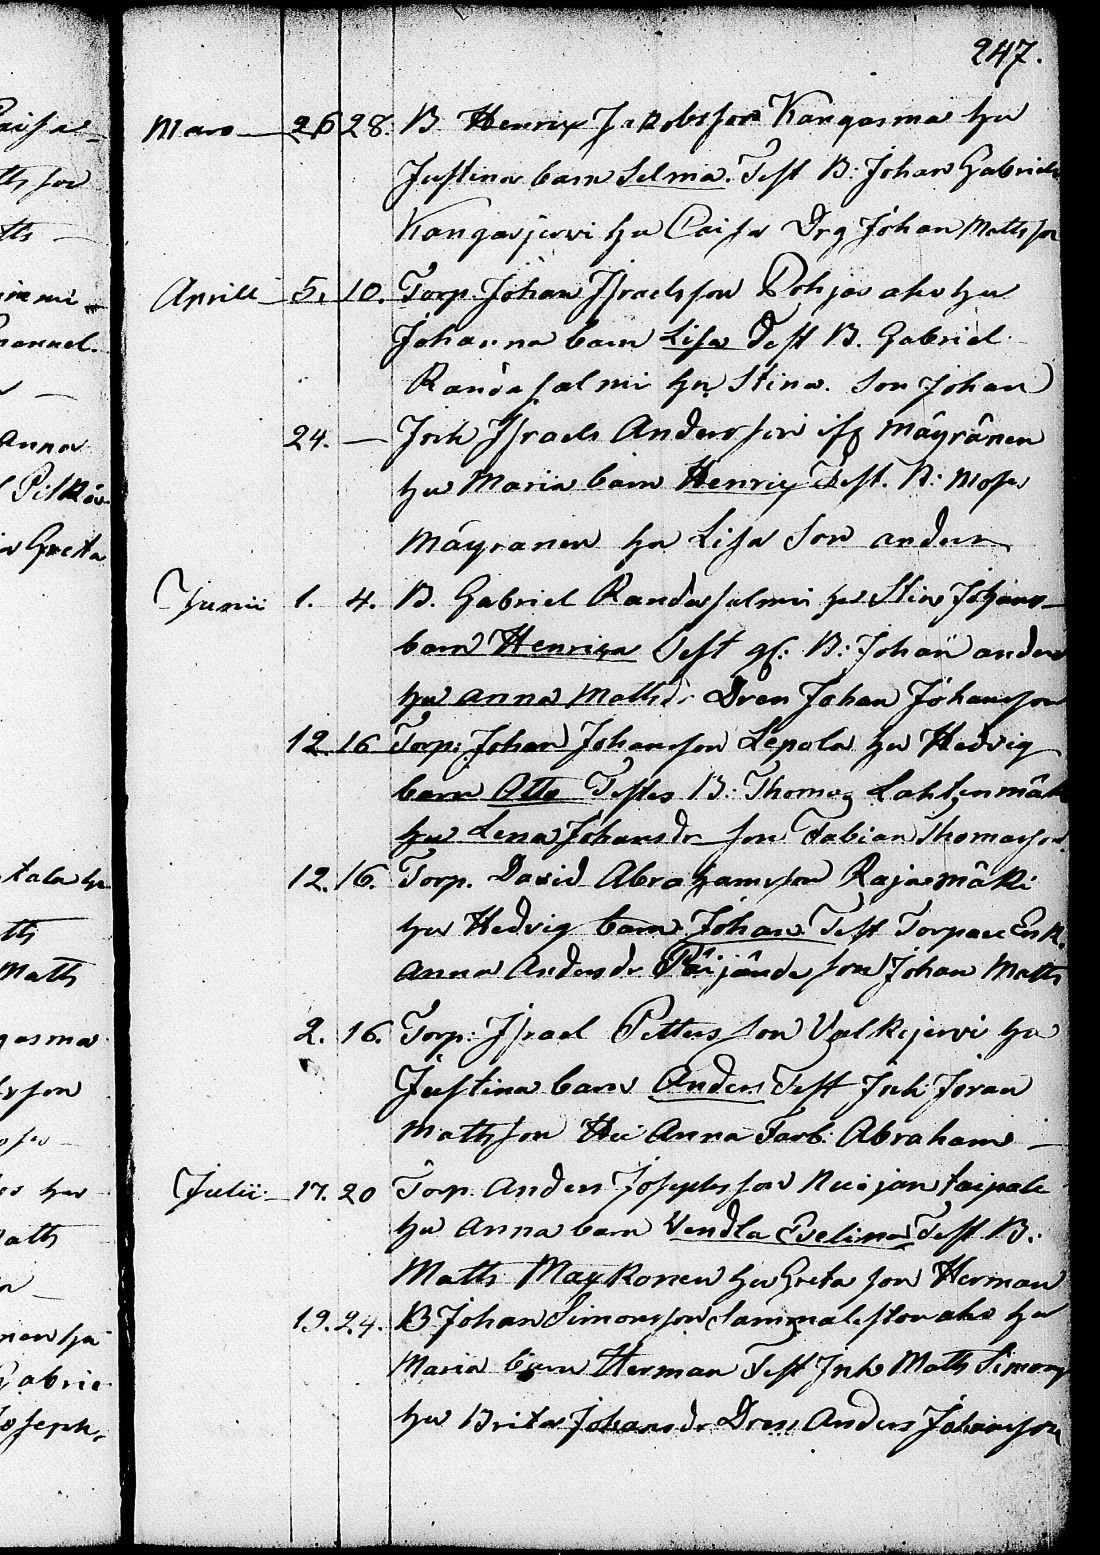 247.
Paisa
Mars 26 28. B. Henrix Jakobsson Kangasma hu
Justina barn Selma. Test B: Johan Gabriels
Kangasjerwi hu Caisa Drg Johan Mattsson
Aprill 5. 10. Torp. Johan Israelsson Pohjas aho hu
Johanna barn Lisa Test B. Gabriel
Randasalmi hu Stina. Son Johan
24. — Inh Israels Andersson Mäyränen
hu Maria barn Henrix Test. B: Mose
Mäyränen hu Lisa Son Anders
Junii 1. 4. B. Gabriel Randasalmi hu Stina Johans
barn Henrica Test gl: B: Johan Anders
hu Anna Mathsdr Dren Johan Johansson
12. 16 Torp: Johan Johansson Lepola hu Hedvig
barn Otto Testes B: Thomas Lahtzenmäk
hu Lena Johansdr son Fabian Thomasson.
12. 16. Torp. David Abrahamsson Rajamäki
hu Hedvig barn Johan Test Torpare Erik
Anna Andersdr Päijände son Johan Matts
2. 16. Torp: Israel Pettersson Valkejerwi hu
Justina barn Anders Test Inh Joran
Mathsson Hu Anna Farb: Abraham —
Julii 17. 20 Torp. Anders Josephsson Ruijantaipale
hu Anna barn Vendla Evelina Test B:
Matts Maykonen hu Greta son Herman
19. 24. B Johan Simonsson Sammaleston aho hu
Maria barn Herman Test Inh Math Simons
hu Brita Johansdr Dren Anders Johansson